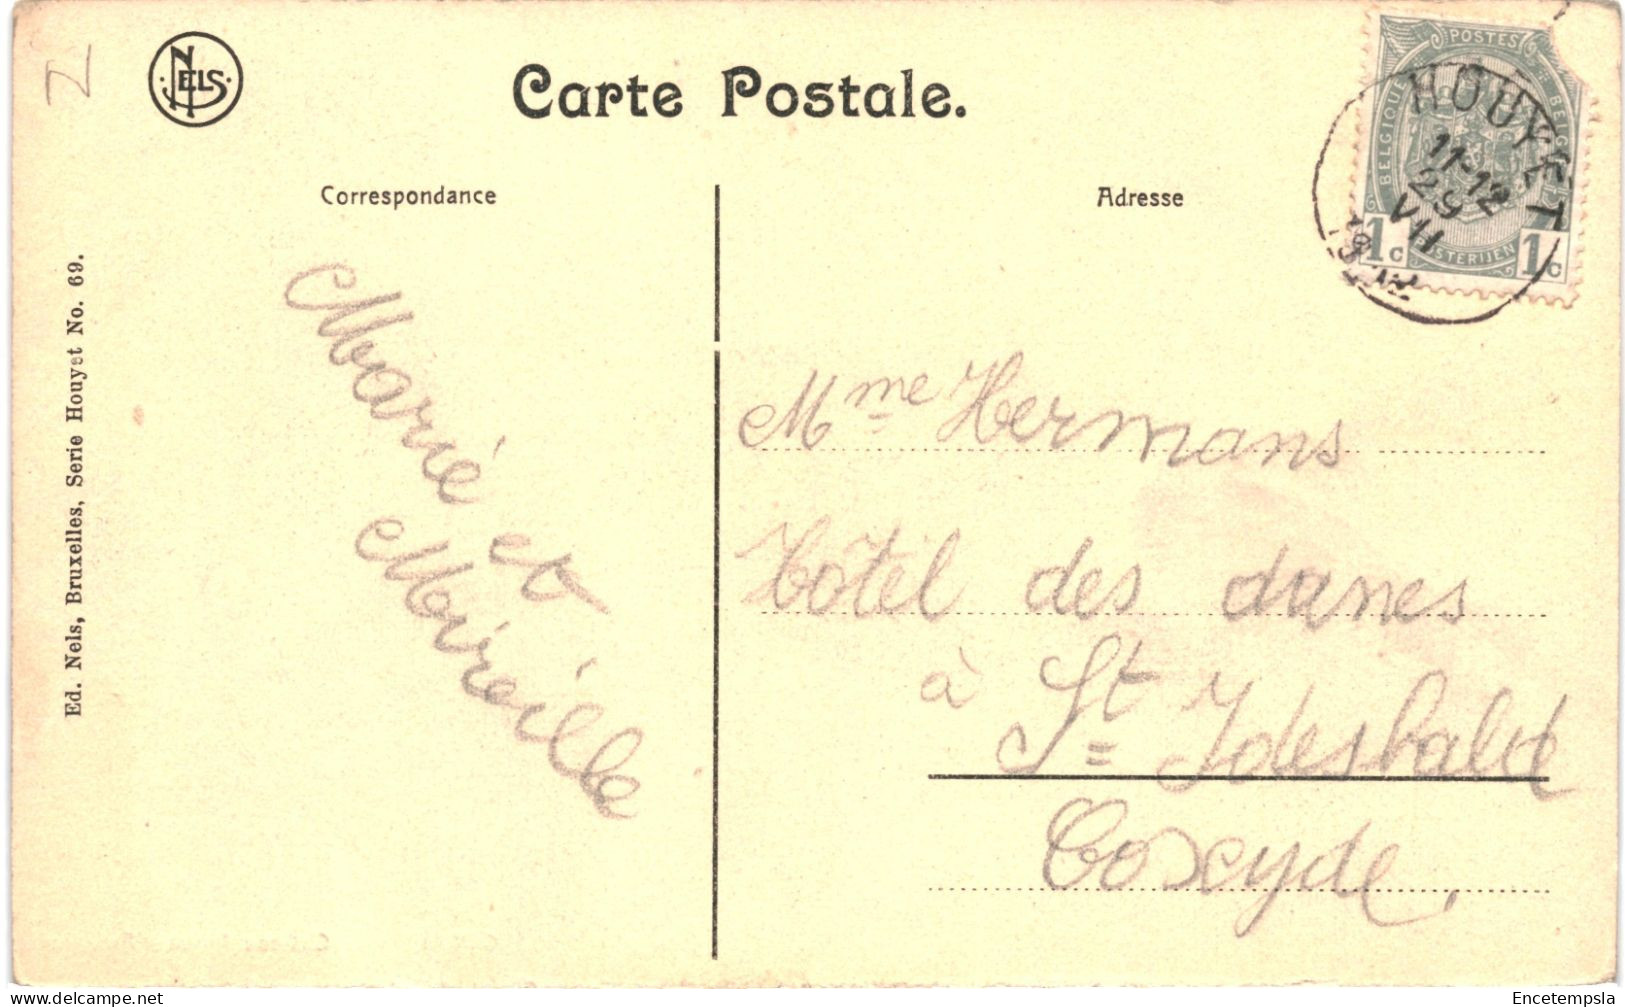 NELS
Carte Postale.
Correspondance
Adresse
POSTES
BELGIQUE
1c
1c
HOUYET
11-12
29
VII
Ed. Nels, Bruxelles, Serie Houyet No. 69.
Marie et
Mireille
Mme Hermans
Hôtel des dunes
à St Idesbald
Coxcyde.
www.delcampe.net
Encetempsla